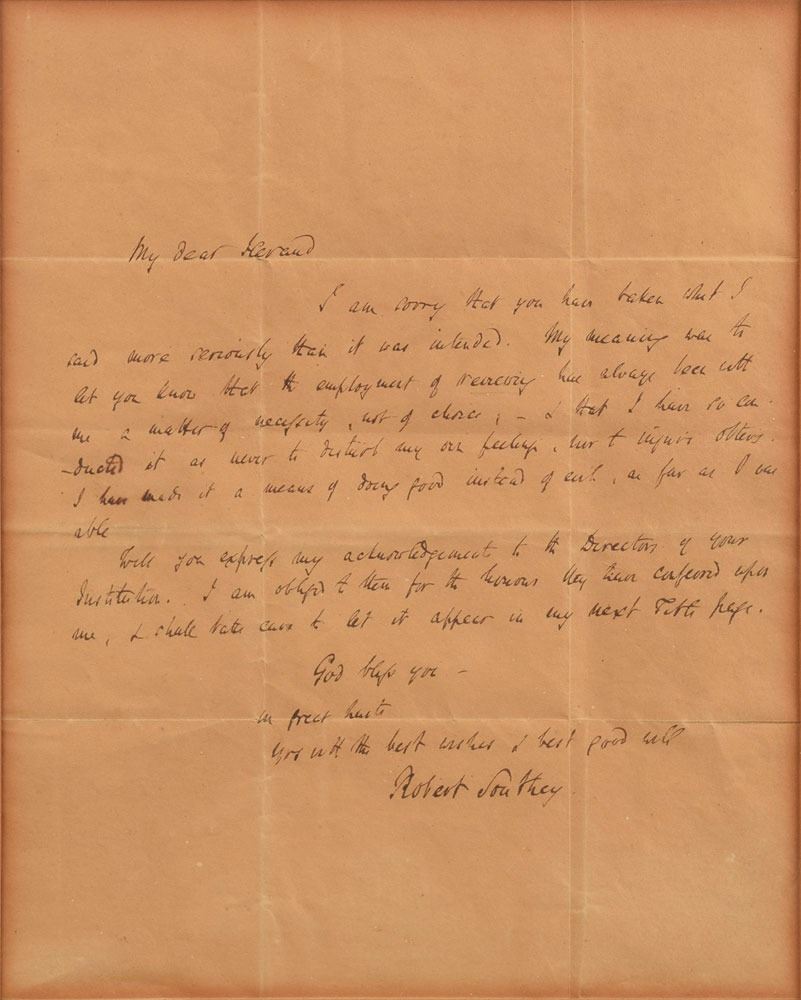 My dear Heraud
I am sorry that you have taken what I
said more seriously than it was intended. My meaning was to
let you know that the employment of reviewing has always been with
me a matter of necessity, not of choice; – & that I have so con-
-ducted it as never to disturb my own feelings, nor to injure others.
I have made it a means of doing good instead of evil, as far as I was
able
Will you express my acknowledgement to the Directors of your
Institution. I am obliged to them for the honour they have conferred upon
me, & shall take care to let it appear in my next Title page.
God bless you –
in great haste
Yrs with the best wishes & best good will
Robert Southey.